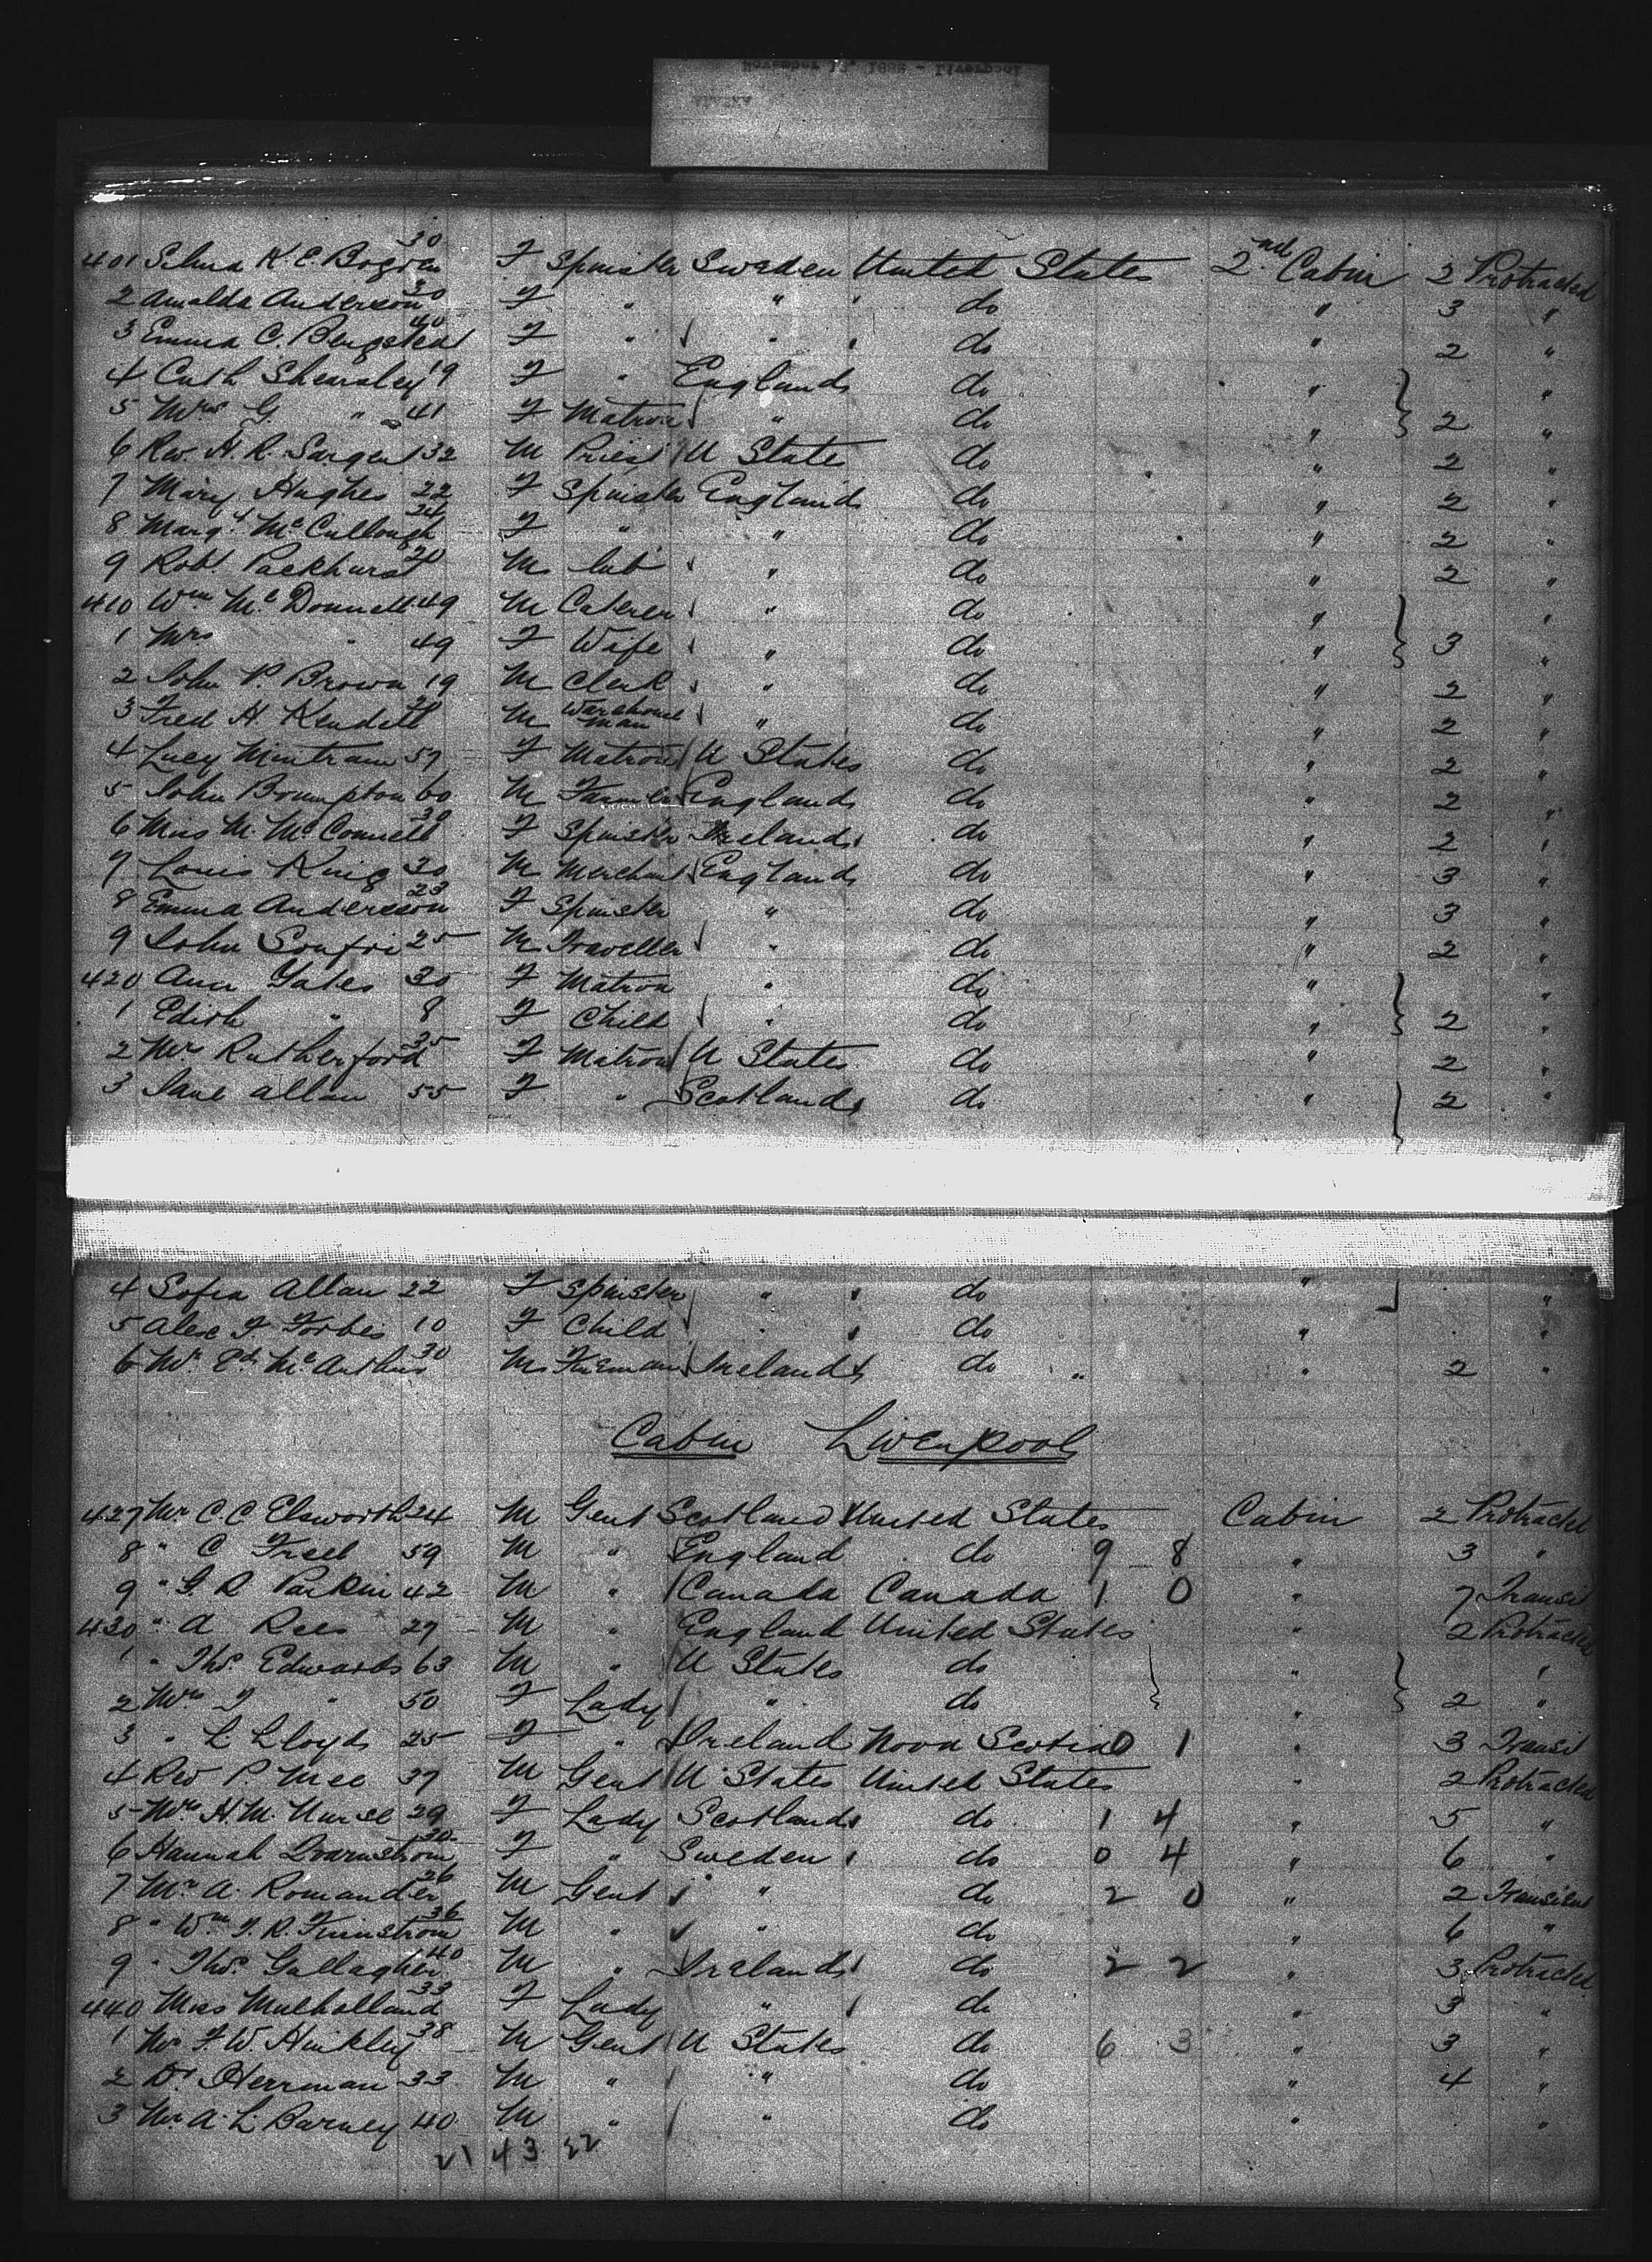 401 Selma K. E. Bogren 30 F Spinster Sweden United States 2nd Cabin 2 Protracted
2 Amalda Anderson 20 F " " " do " 3 "
3 Emma C. Bengsten 40 F " " " do " 2 "
4 Cath Shearsley 19 F " England do " "
5 Mrs G. " 41 F Matron " do " 2 "
6 Rev. H. R. Sargent 32 M Priest U States do " 2 "
7 Mary Hughes 22 F Spinster England do " 2 "
8 Margt McCullough 24 F " " do " 2 "
9 Robt Packhurst 20 M Lab " do " 2 "
410 Wm McDonnell 49 M Caterer " do " "
1 Mrs " 49 F Wife " do " 3 "
2 John P. Brown 19 M Clerk " do " 2 "
3 Fred H. Kendell M Warehouse man " do " 2 "
4 Lucy Mintram 57 F Matron U States do " 2 "
5 John Brumpton 60 M Farmer England do " 2 "
6 Miss M. McConnell 30 F Spinster Ireland do " 2 "
7 Louis King 30 M Merchant England do " 3 "
8 Emma Anderson 23 F Spinster " do " 3 "
9 John 25 M Traveller " do " 2 "
420 Ann Yates 30 F Matron " do " "
1 Edith " 8 F Child " do " 2 "
2 Mrs Rutherford 35 F Matron U States do " 2 "
3 Jane Allan 55 F " Scotland do " 2 "
4 Sofia Allan 22 F Spinster " " do " "
5 Alex F. Forbes 10 F Child " do " "
6 Mr Ed. McArthur 30 M Fireman Ireland do " " 2 "
Cabin Liverpool
427 Mr C. C Elsworth 24 M Gent Scotland United States Cabin 2 Protracted
8 " C Freel 59 M " England do 9 8 " 3 "
9 " G. R Parkin 42 M " Canada Canada 1 0 " 7 Transit
430 " A Rees 29 M " England United States " 2 Protracted
1 " Thos. Edwards 63 M " U States do " "
2 Mrs " 50 F Lady " do " 2 "
3 " L Lloyds 25 F " Ireland Nova Scotia 0 1 " 3 Transit
4 Rev P. Mee 37 M Gent U States United States " 2 Protracted
5 Mrs H. M. Nurse 29 F Lady Scotland do 1 4 " 5 "
6 Hannah 30 F " Sweden do 0 4 " 6 "
7 Mr A. Romander 26 M Gent " do 2 0 " 2 Transient
8 " Wm 36 M " " do " 6 "
9 " Thos. Gallagher 40 M " Ireland do 2 2 " 3 Protracted
440 Miss Mulholland 33 F Lady " do " 3 "
1 Mr F. W. Hinkley 38 M Gent U States do 6 3 " 3 "
2 Dr Herrman 33 M " " do " 4 "
3 Mr A. L. Barney 40 M " " do " "
21 43 22